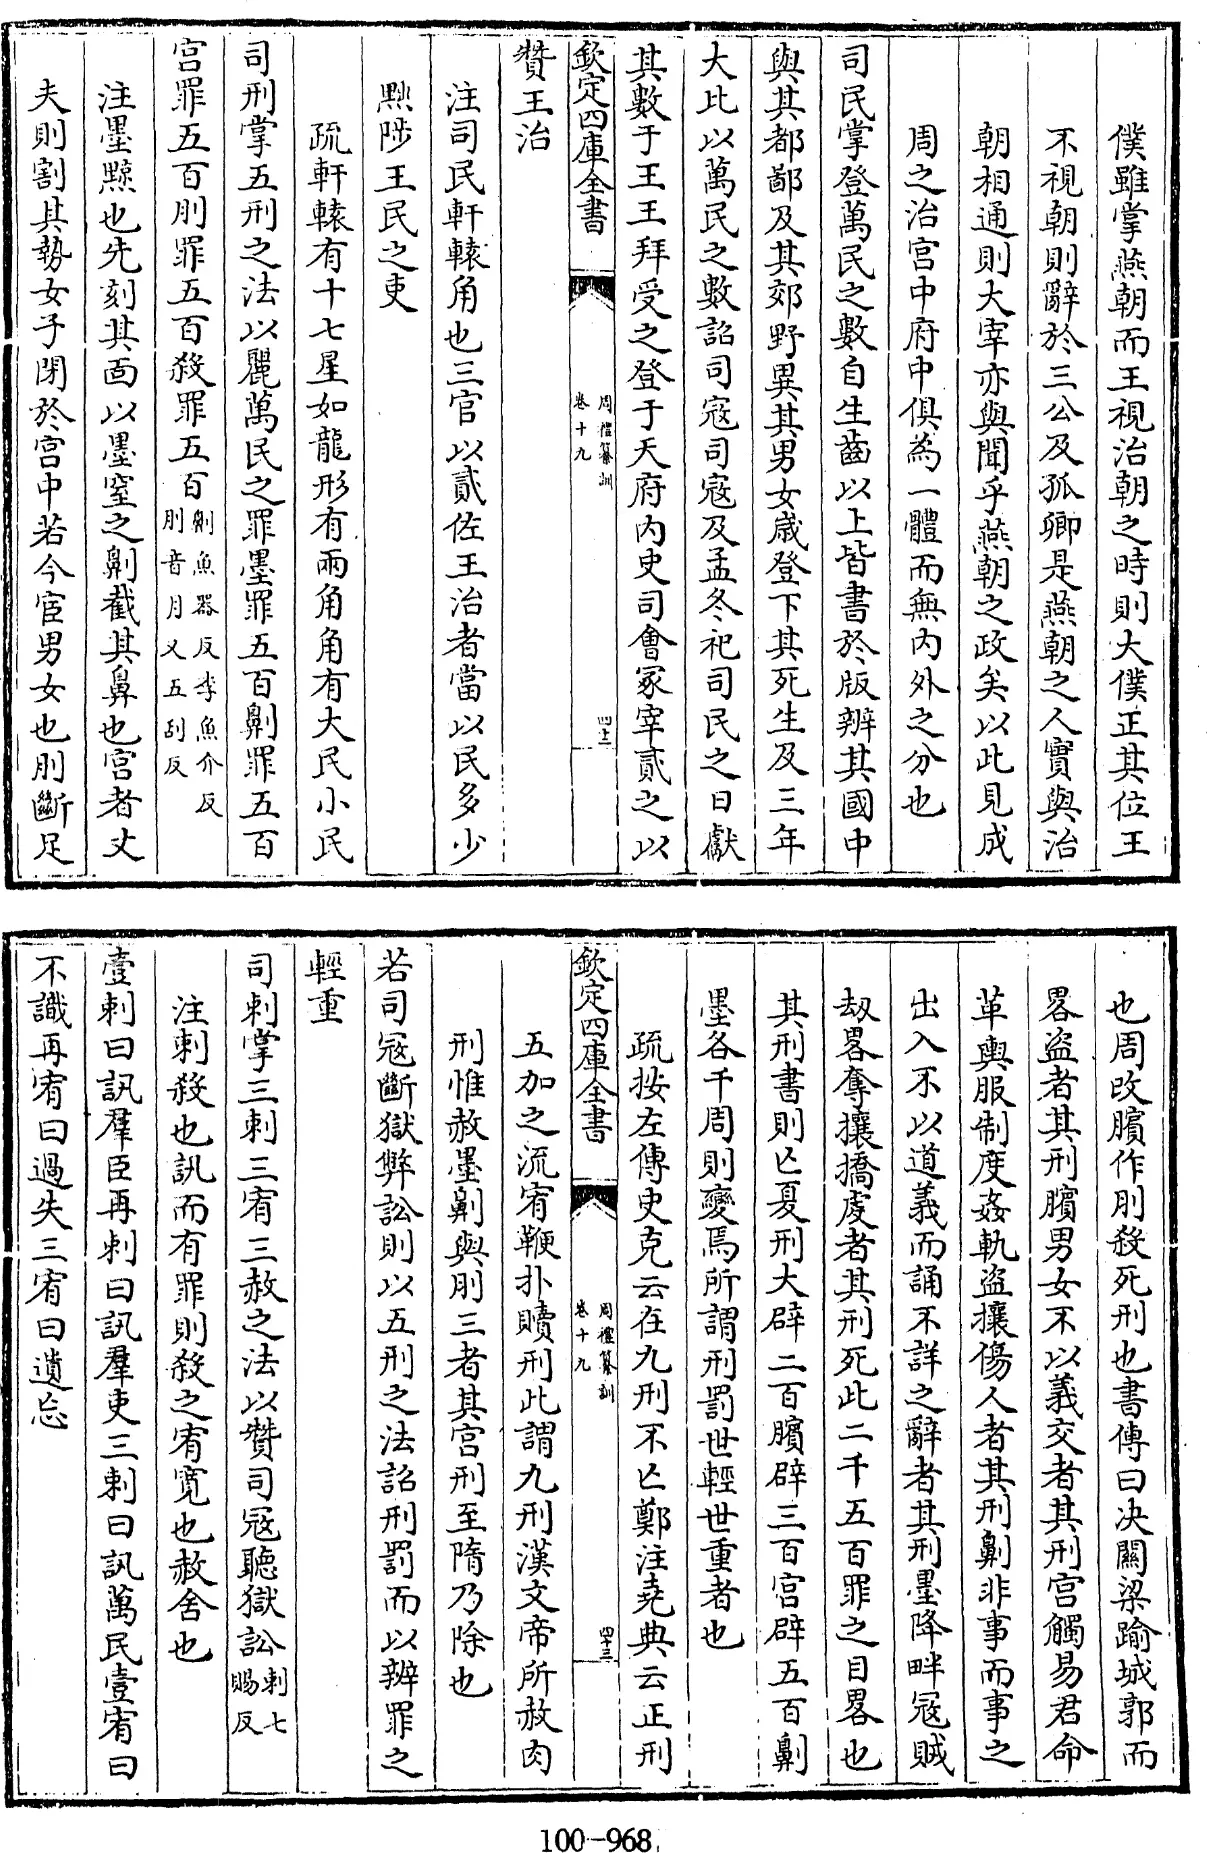 僕雖掌燕朝而王視治朝之時則大僕正其位王
不視朝則辭於三公及孤卿是燕朝之人實與治
朝相通則大宰亦與聞乎燕朝之政矣以此見成
周之治宫中府中俱為一體而無内外之分也
司民掌登萬民之數自生齒以上皆書於版辨其國中
與其都鄙及其郊野異其男女歲登下其死生及三年
大比以萬民之數詔司寇司寇及孟冬祀司民之日獻
其數于王王拜受之登于天府内史司會冢宰貳之以
欽定四庫全書
周禮纂訓
卷十九
四十二
贊王治
注司民軒轅角也三官以貳佐王治者當以民多少
黜陟主民之吏
疏軒轅有十七星如龍形有兩角角有大民小民
司刑掌五刑之法以麗萬民之罪墨罪五百劓罪五百
宫罪五百刖罪五百殺罪五百劓魚器反李魚介反
刖音月又五刮反
注墨黥也先刻其面以墨窒之劓截其鼻也宫者丈
夫則割其勢女子閉於宫中若今宦男女也刖斷足
也周改臏作刖殺死刑也書傳曰决關梁踰城郭而
畧盗者其刑臏男女不以義交者其刑宫觸易君命
革輿服制度姦軌盗攘傷人者其刑劓非事而事之
出入不以道義而誦不詳之辭者其刑墨降畔寇賊
刼畧奪攘撟虔者其刑死此二千五百罪之目畧也
其刑書則亡夏刑大辟二百臏辟三百宫辟五百劓
墨各千周則變焉所謂刑罰世輕世重者也
疏按左傳史克云在九刑不亡鄭注堯典云正刑
欽定四庫全書
周禮纂訓
卷十九
四十三
五加之流宥鞭扑贖刑此謂九刑漢文帝所赦肉
刑惟赦墨劓與刖三者其宫刑至隋乃除也
若司寇斷獄弊訟則以五刑之法詔刑罰而以辨罪之
輕重
司刺掌三刺三宥三赦之法以贊司寇聽獄訟刺七
賜反
注刺殺也訊而有罪則殺之宥寛也赦舍也
壹刺曰訊羣臣再刺曰訊羣吏三刺曰訊萬民壹宥曰
不識再宥曰過失三宥曰遺忘
100-968